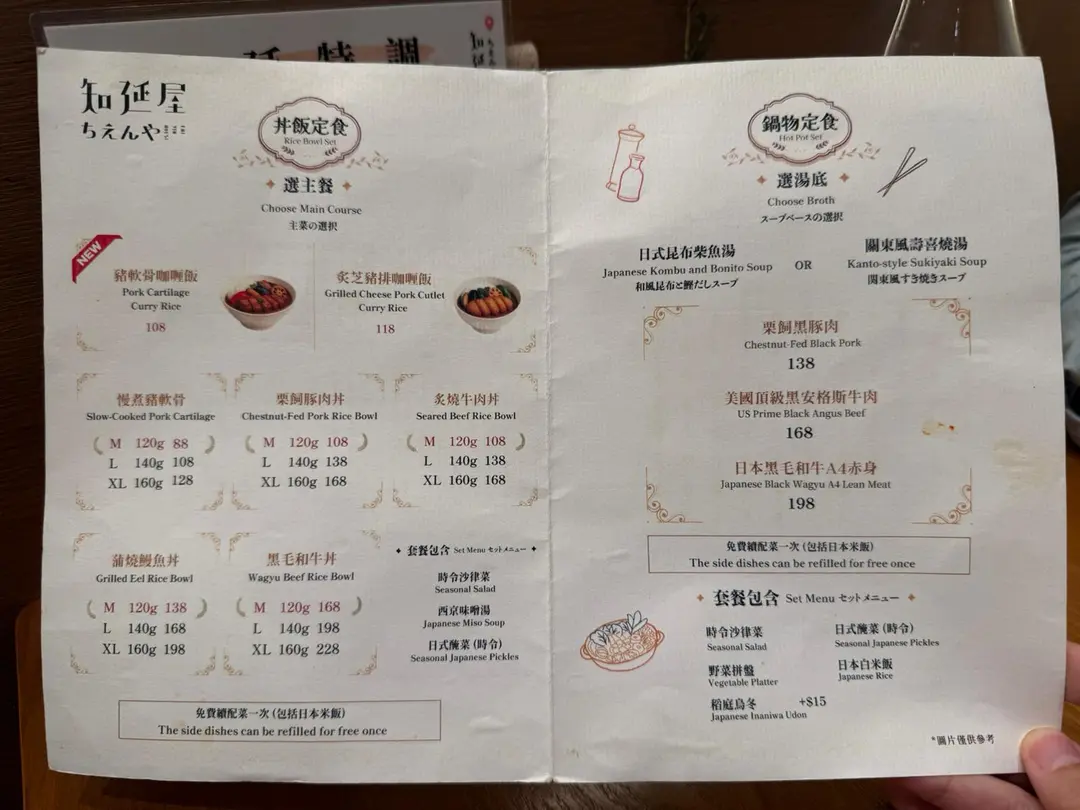 特調
知延屋
ちえんや
丼飯定食
Rice Bowl Set
選主餐
Choose Main Course
主菜の選択
NEW
豬軟骨咖喱飯
Pork Cartilage
Curry Rice
108
炙芝豬排咖喱飯
Grilled Cheese Pork Cutlet
Curry Rice
118
慢煮豬軟骨
Slow-Cooked Pork Cartilage
M 120g 88
L 140g 108
XL 160g 128
栗飼豚肉丼
Chestnut-Fed Pork Rice Bowl
M 120g 108
L 140g 138
XL 160g 168
炙燒牛肉丼
Seared Beef Rice Bowl
M 120g 108
L 140g 138
XL 160g 168
蒲燒鰻魚丼
Grilled Eel Rice Bowl
M 120g 138
L 140g 168
XL 160g 198
黑毛和牛丼
Wagyu Beef Rice Bowl
M 120g 168
L 140g 198
XL 160g 228
套餐包含 Set Menu セットメニュー
時令沙律菜
Seasonal Salad
西京味噌湯
Japanese Miso Soup
日式醃菜 (時令)
Seasonal Japanese Pickles
免費續配菜一次 (包括日本米飯)
The side dishes can be refilled for free once
鍋物定食
Hot Pot Set
選湯底
Choose Broth
スープベースの選択
日式昆布柴魚湯
Japanese Kombu and Bonito Soup
和風昆布と鰹だしスープ
OR
關東風壽喜燒湯
Kanto-style Sukiyaki Soup
関東風すき焼きスープ
栗飼黑豚肉
Chestnut-Fed Black Pork
138
美國頂級黑安格斯牛肉
US Prime Black Angus Beef
168
日本黑毛和牛A4赤身
Japanese Black Wagyu A4 Lean Meat
198
免費續配菜一次 (包括日本米飯)
The side dishes can be refilled for free once
套餐包含 Set Menu セットメニュー
時令沙律菜
Seasonal Salad
日式醃菜 (時令)
Seasonal Japanese Pickles
野菜拼盤
Vegetable Platter
日本白米飯
Japanese Rice
稻庭烏冬 +$15
Japanese Inaniwa Udon
*圖片僅供參考